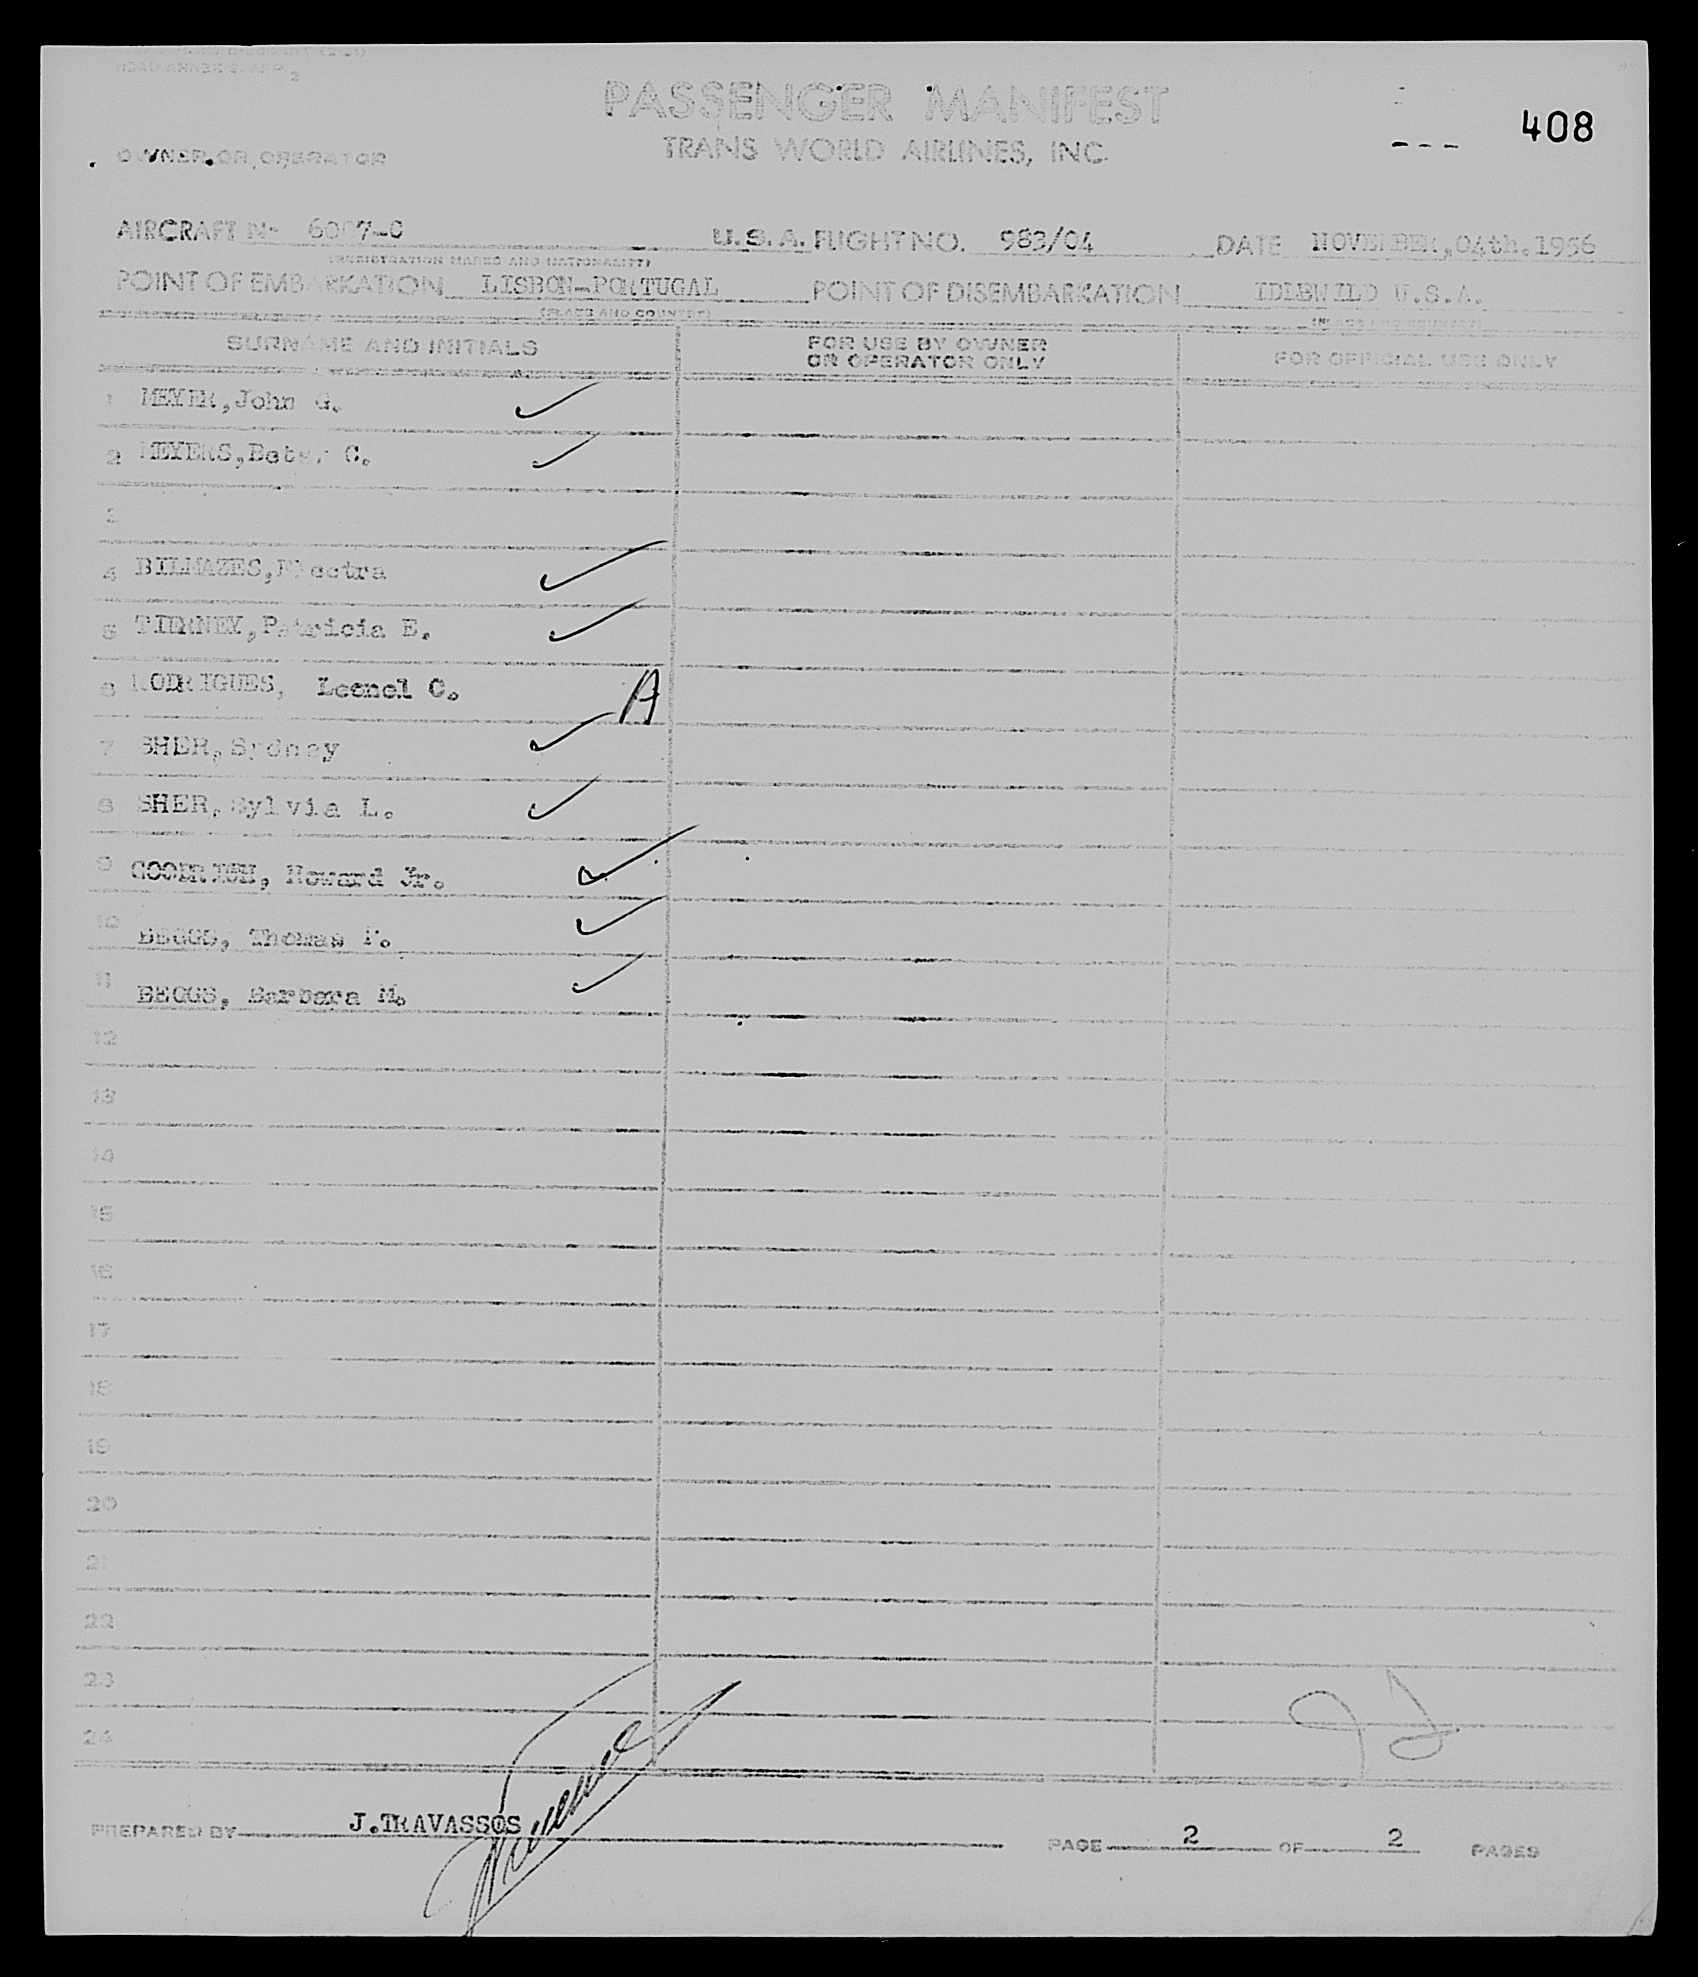 PASSENGER MANIFEST
408
TRANS WORLD AIRLINES, INC.
OWNER OR OPERATOR
AIRCRAFT No U.S.A. FLIGHT NO. 983/04 DATE NOVEMBER,04th.1956
(REGISTRATION MARKS AND NATIONALITY)
POINT OF EMBARKATION LISBON-PORTUGAL POINT OF DISEMBARKATION IDLEWILD U.S.A.
(PLACE AND COUNTRY) (PLACE AND COUNTRY)
SURNAME AND INITIALS FOR USE BY OWNER OR OPERATOR ONLY FOR OFFICIAL USE ONLY
1 MEYER, John G.
2 MEYERS, C.
3
4 BILMAZES, Electra
5 TIERNEY, Patricia E.
6 RODRIGUES, Leonel C. A
7 SHER, Sydney
8 SHER, Sylvia L.
9 GOODRICH, Howard Jr.
10 BEGGS, Thomas F.
11 BEGGS, Barbara M.
12
13
14
15
16
17
18
19
20
21
22
23
24
PREPARED BY J.TRAVASSOS PAGE 2 OF 2 PAGES